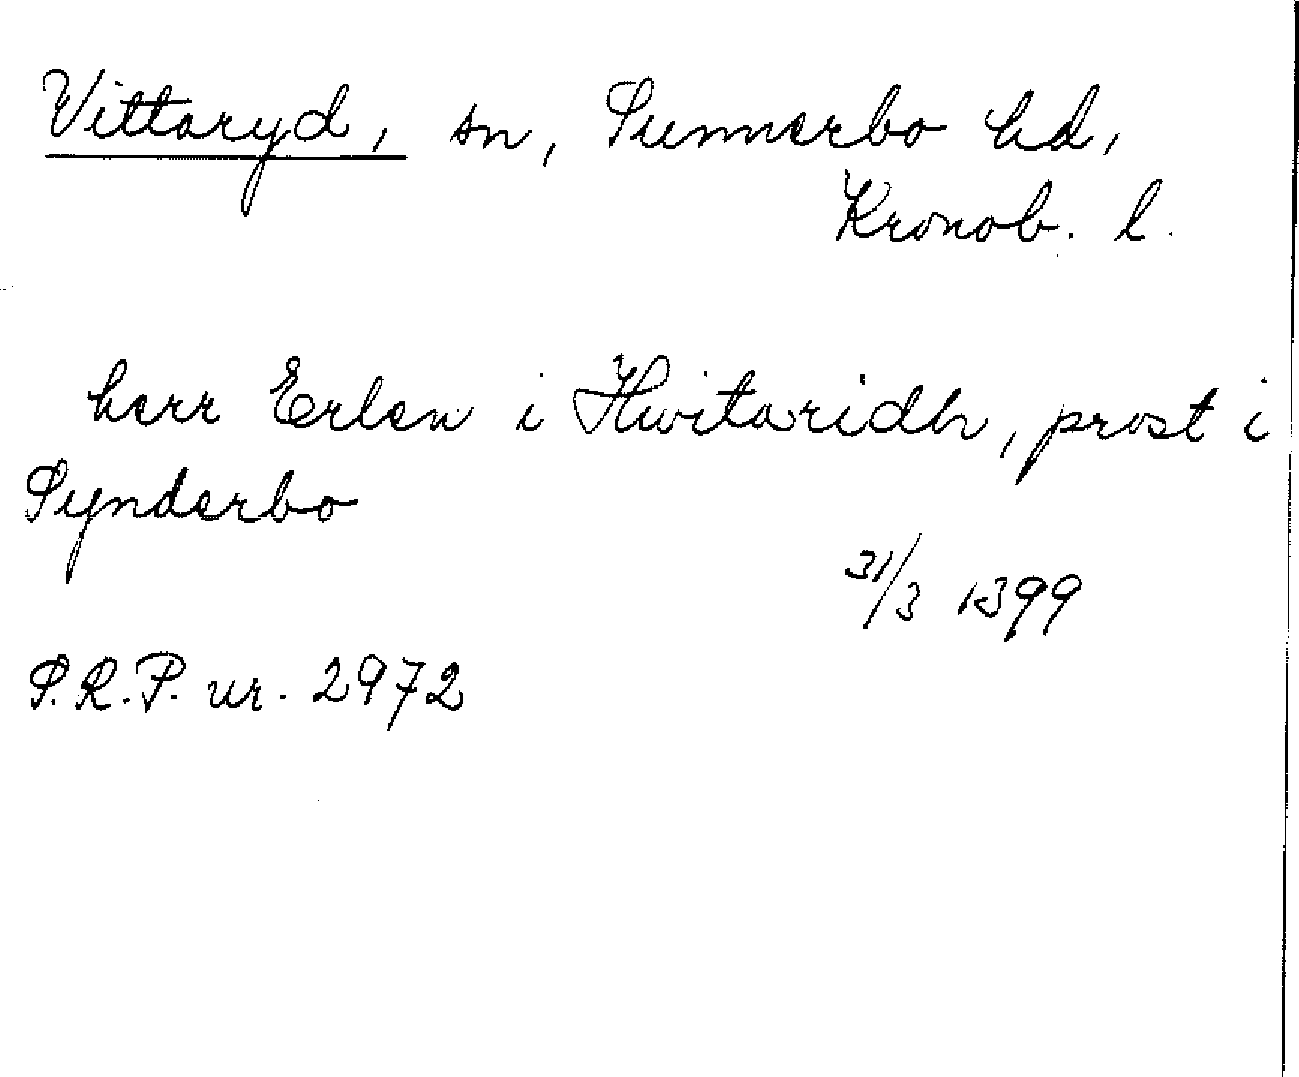 Vittaryd, sn, Sunnerbo hd,
Kronob. l.
herr Erlen i Hwitaridh, prost i
Synderbo
31/3 1399
S.R.P. nr. 2972